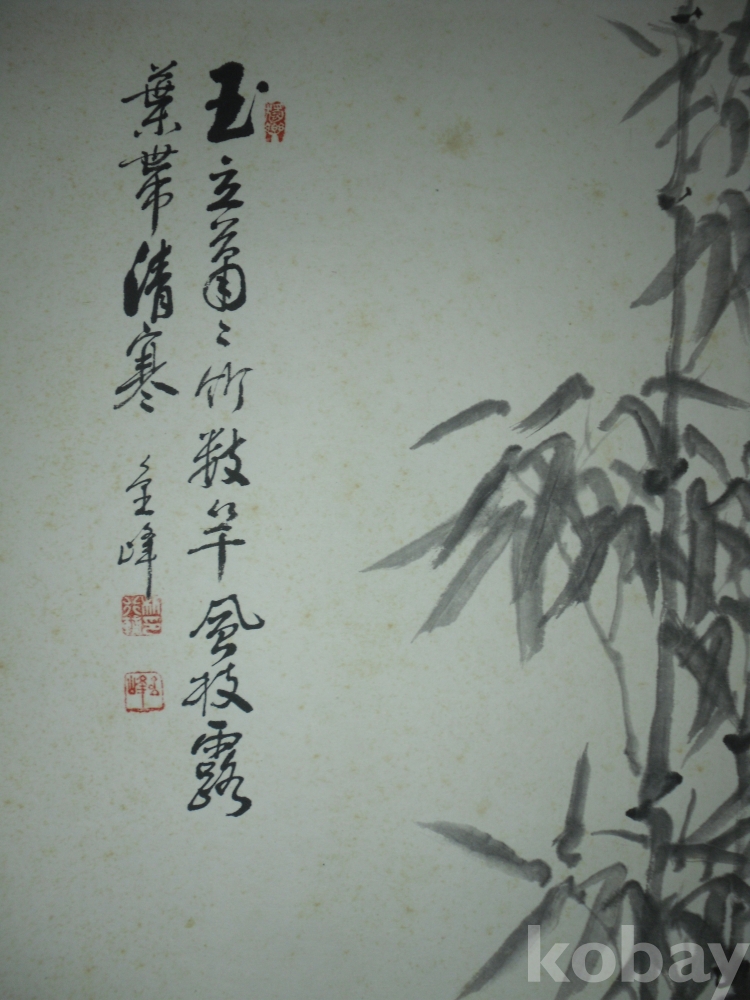 玉立蕭〻竹數竿風枝露
葉帶清寒
金峰
kobay